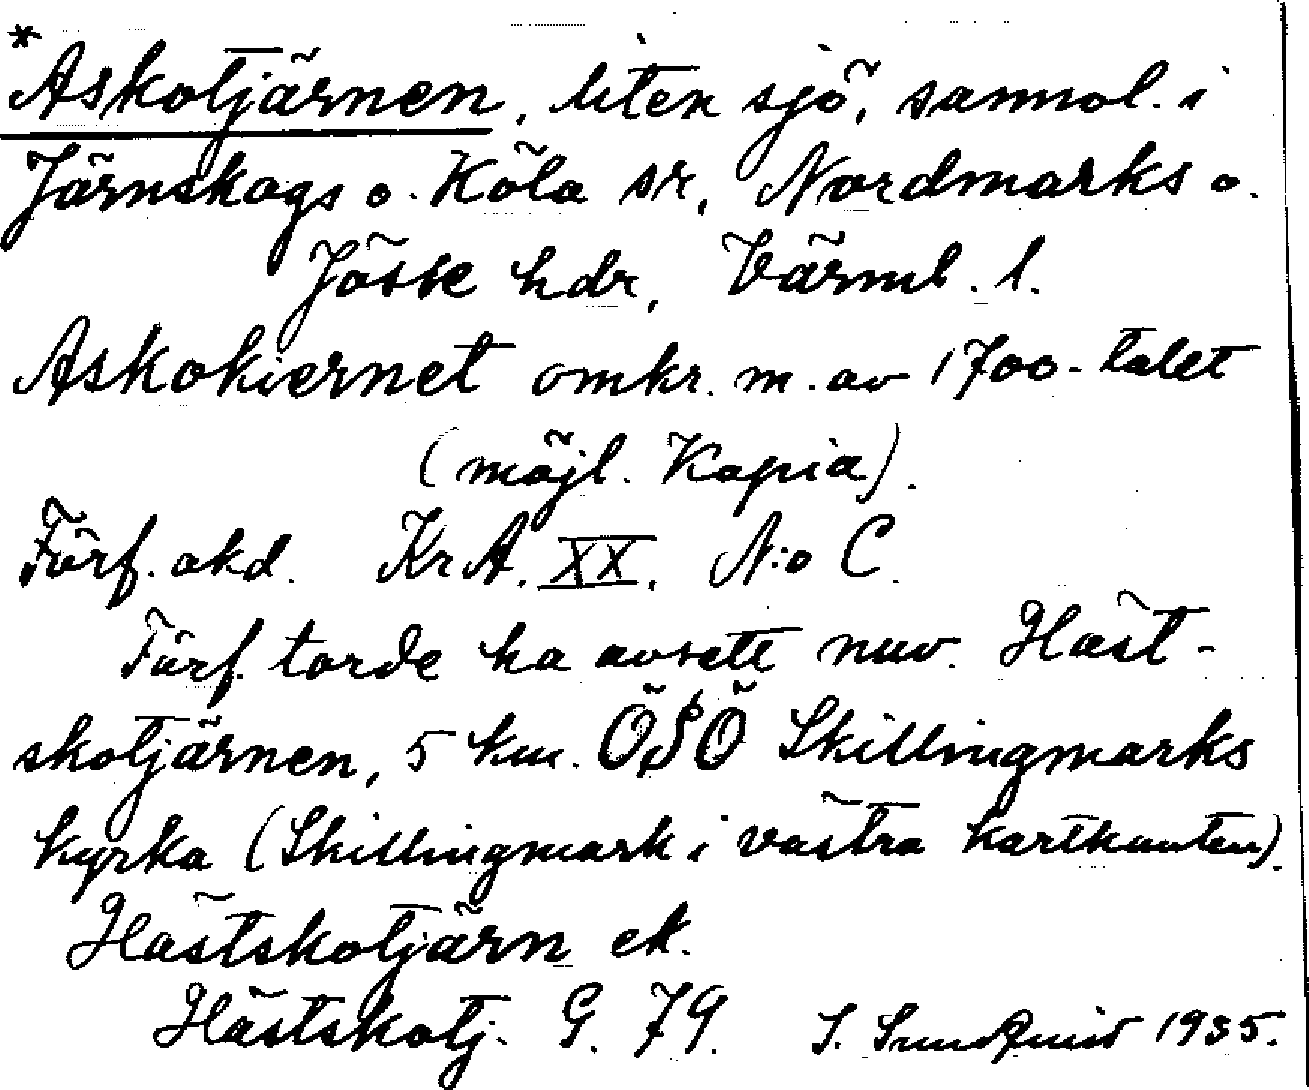 *Askotjärnen, liten sjö, sannol. i
Järnskogs o. Köla sr, Nordmarks o.
Jösse hdr, Värml. l.
Askokiernet omkr. m. av 1700-talet
(möjl. Kopia).
Förf. okd. KrA. XX. N:o C.
Förf. torde ha avsett nuv. Häst-
skotjärnen, 5 km. ÖSÖ Skillingmarks
kyrka (Skillingmark i västra kartkanten).
Hästskotjärn ek.
Hästskotj. G. 79. S. Sundquist 1935.